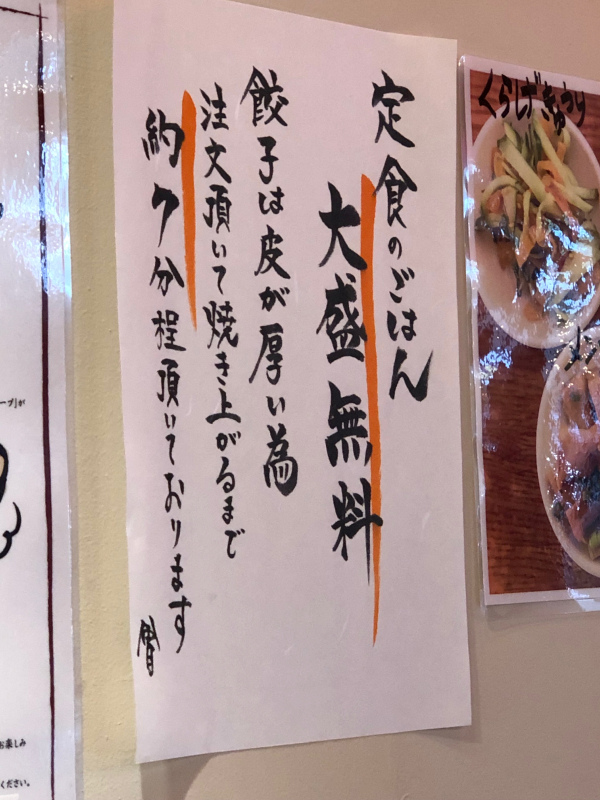 定食のごはん
大盛無料
餃子は皮が厚い為
注文頂いて焼き上がるまで
約7分程頂いております
くらげきゅうり
ープ」が
お楽しみ
ください。